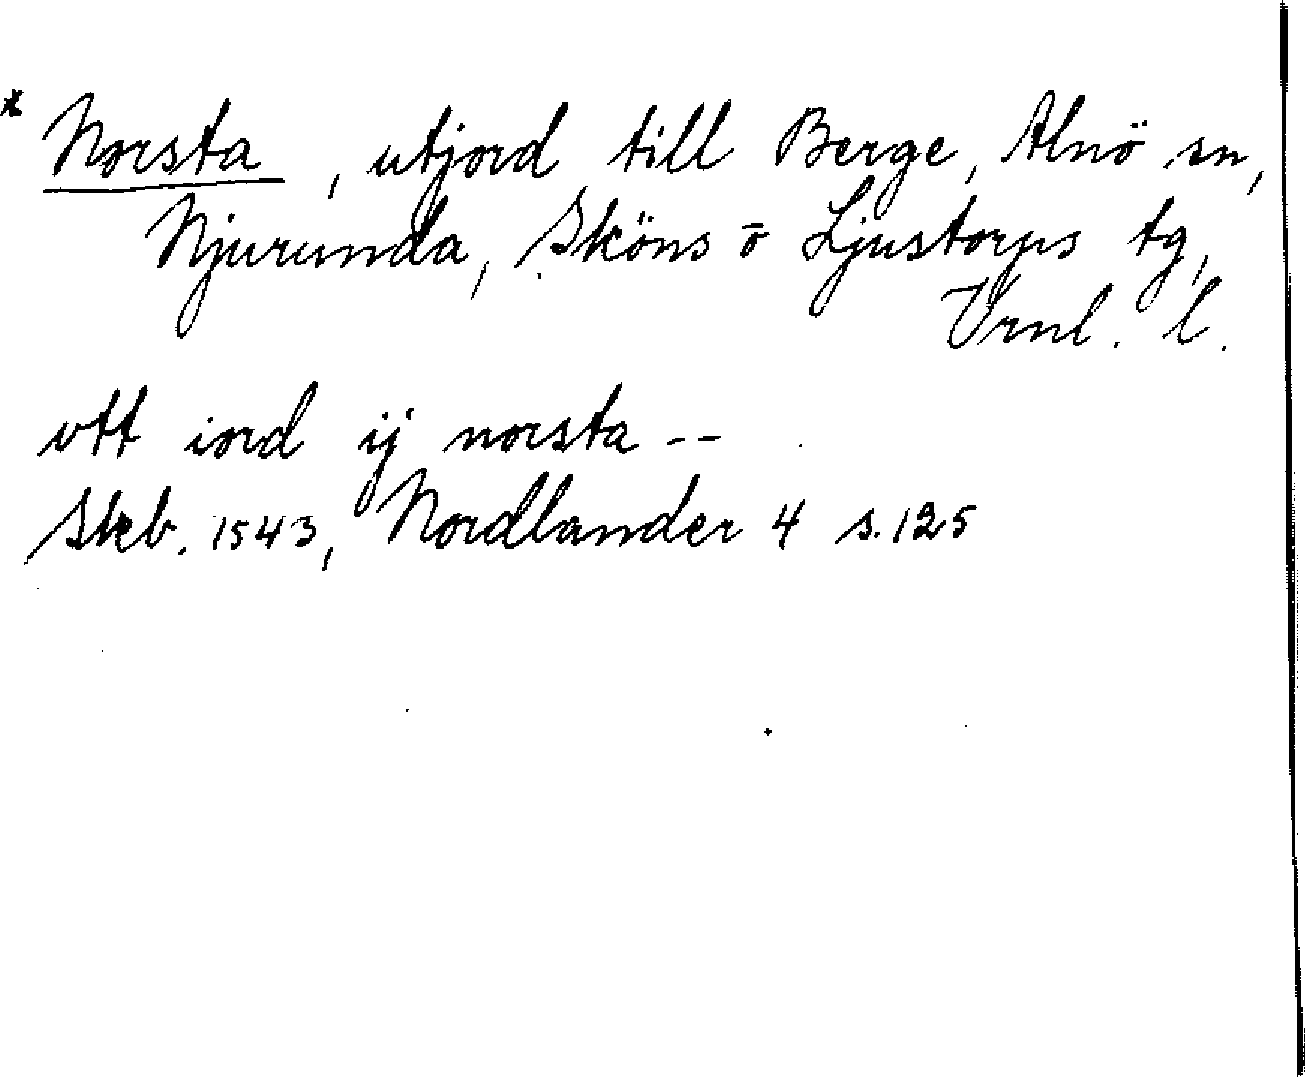 * Norsta, utjord till Berge, Alnö sn,
Njurunda, Sköns o Ljustorps tg,
Vrnl. l.
vtt iord ij norsta --
Skb. 1543, Nordlander 4 s. 125